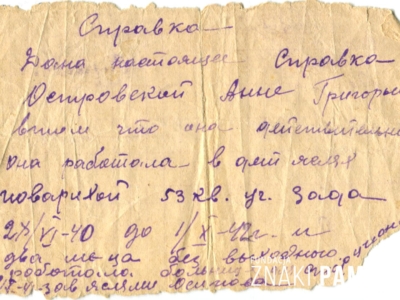 Справка
Дана настоящая Справка
Островской Анне Григорье
вне в том что она действительно
она работала в дет яслях
поварихой 53 кв. уч.
27/VI-40 до 1/X-42г. и
два м-ца без выходного
работала
зав яслями Осипова
ZНАКI PAM